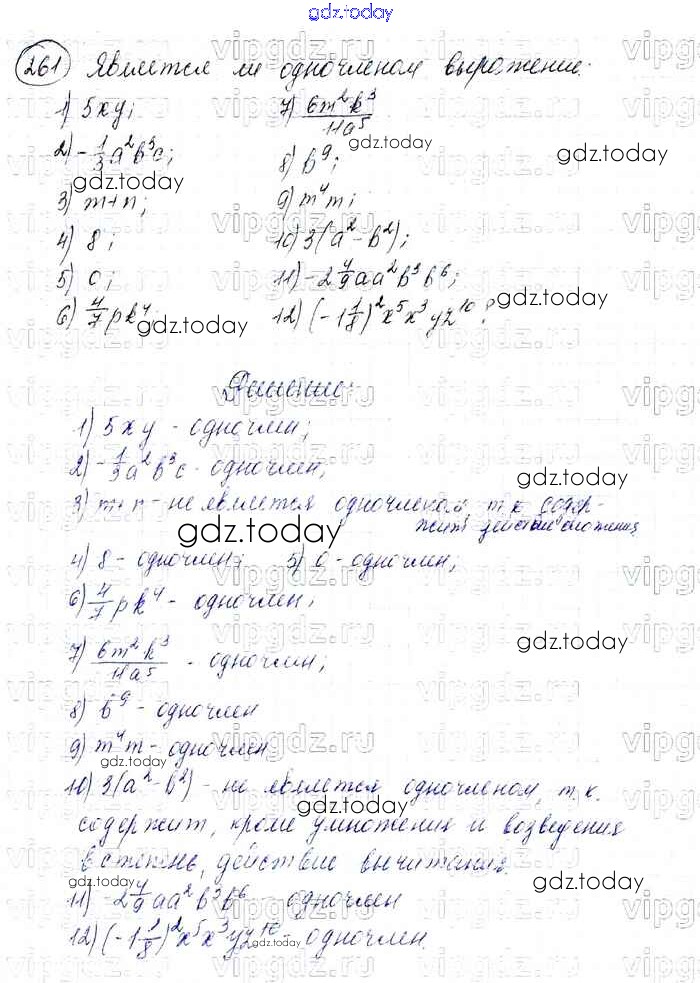 gdz.today
261 Является ли одночленом выражение:
1) 5xy; 7) 6m²k³/11a⁵
2) -1/3a²b³c; 8) b⁹;
3) m+n; 9) m⁴m;
4) 8; 10) 3(a²-b²);
5) 0; 11) -2 4/9aa²b³b⁶;
6) 4/7pk⁴ 12) (-1 1/8)²x⁵x³yz¹⁰?
Решение:
1) 5xy - одночлен;
2) -1/3a²b³c - одночлен;
3) m+n - не является одночленом, т.к. содер-
жит действие сложения
4) 8 - одночлен; 5) 0 - одночлен;
6) 4/7pk⁴ - одночлен;
7) 6m²k³/11a⁵ - одночлен;
8) b⁹ - одночлен
9) m⁴m - одночлен
10) 3(a²-b²) - не является одночленом, т.к.
содержит, кроме умножения и возведения
в степень, действие вычитания.
11) -2 4/9aa²b³b⁶ - одночлен
12) (-1 1/8)²x⁵x³yz¹⁰ - одночлен.